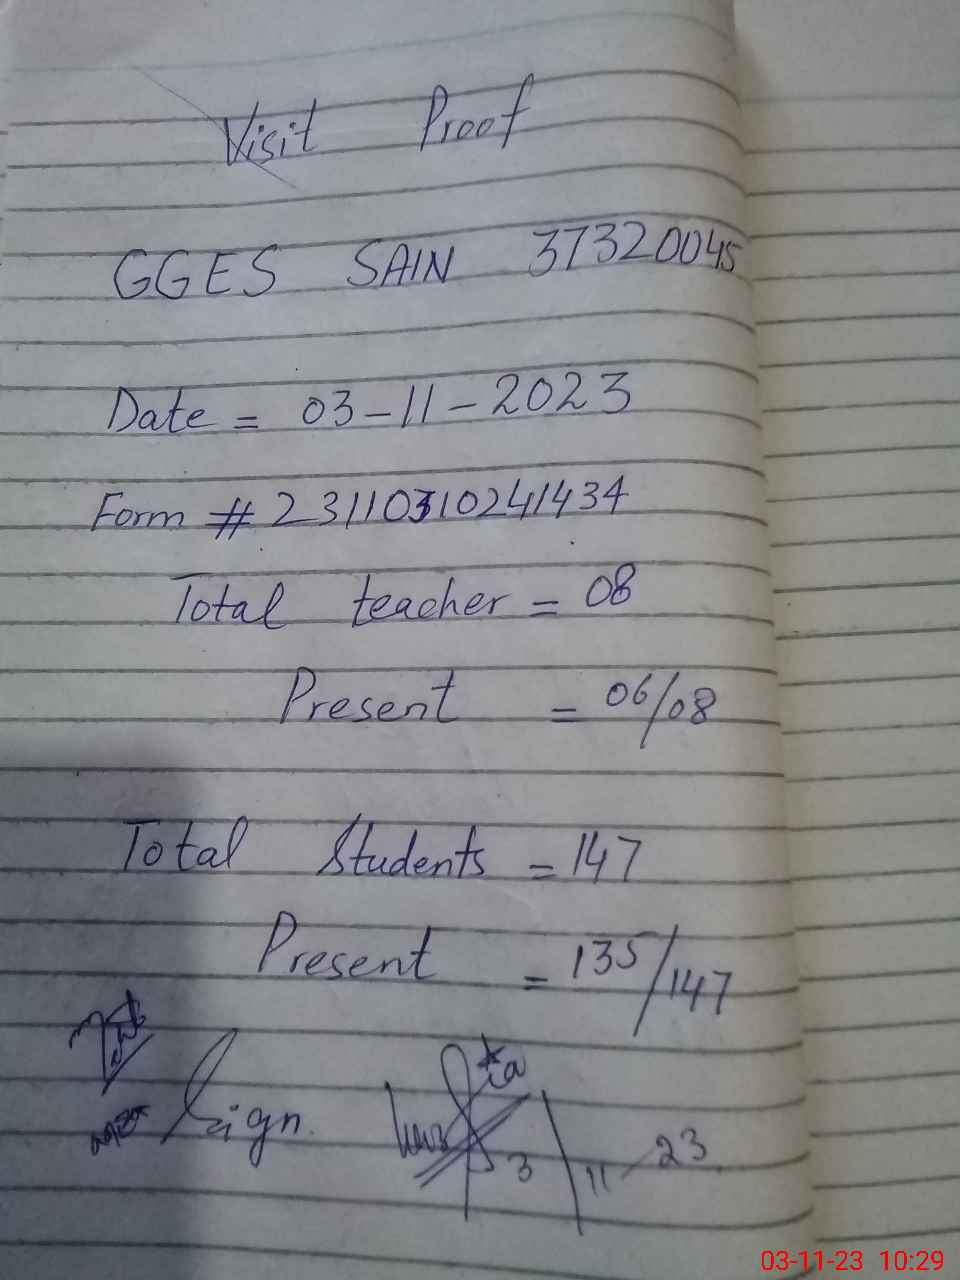 Visit Proof
GGES SAIN 37320045
Date = 03-11-2023
Form # 23110310241434
Total teacher = 08
Present = 06/08
Total Students = 147
Present = 135/147
Sign.
3/11-23
03-11-23 10:29